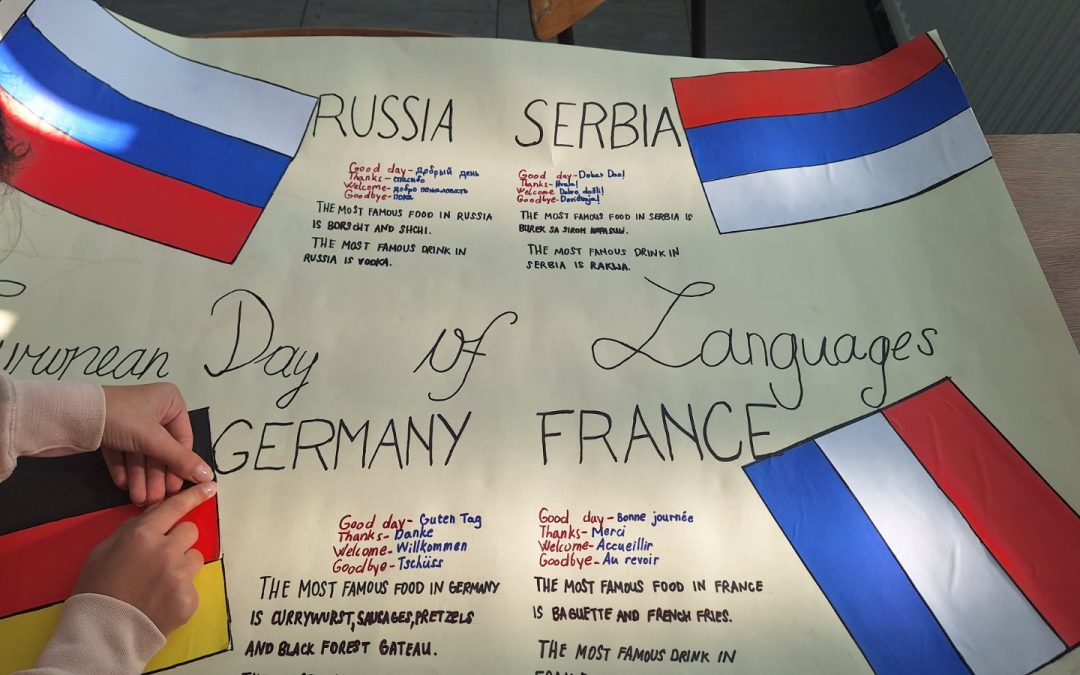 RUSSIA
Good day-добрый день
Thanks-спасибо
Welcome-добро пожаловать
Goodbye-пока
THE MOST FAMOUS FOOD IN RUSSIA
IS BORSCHT AND SHCHI.
THE MOST FAMOUS DRINK IN
RUSSIA IS VODKA.
SERBIA
Good day-Dobar Dan!
Thanks-Hvala!
Welcome Dobro došli!
Goodbye-
THE MOST FAMOUS FOOD IN SERBIA IS
BUREK SA SIROM
THE MOST FAMOUS DRINK IN
SERBIA IS RAKIJA.
uropean Day of Languages
GERMANY
Good day-Guten Tag
Thanks-Danke
Welcome-Willkommen
Goodbye-Tschüss
THE MOST FAMOUS FOOD IN GERMANY
IS CURRYWURST, SAUSAGES, PRETZELS
AND BLACK FOREST GATEAU.
FRANCE
Good day-Bonne journée
Thanks-Merci
Welcome-Accueillir
Goodbye-Au revoir
THE MOST FAMOUS FOOD IN FRANCE
IS BAGUETTE AND FRENCH FRIES.
THE MOST FAMOUS DRINK IN